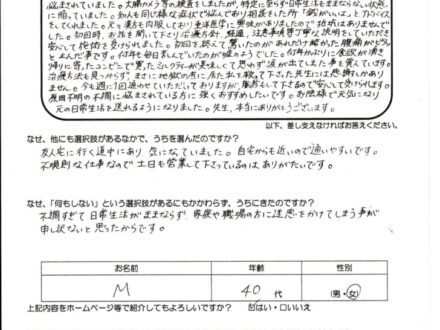 悩まされていました。大腸カメラ等の検査をしましたが、特定に至らず日常生活もままならない状態
に陥っていました。知人も同じ様な症状で悩んでおり相談をした所「鍼がいいよ」とアドバイス
をしてくれました。元々漢方も内服しており東洋医学に興味がありましたので抵抗はありませんで
した。初回時、お話を聞いて下さり治療方針、経過、注意事項等丁寧な説明をしていただき
安心して施術を受けられました。初回を終えて驚いたのがあれだけ痛かった腹痛がピタッ
と止んだ事です。何年も毎日苦しんでいたのが嘘のようでした。何か月ぶりに食欲が湧き
帰りに寄ったコンビニで買ったシュークリームが美味しくて思わず涙が出てしまった事を覚えています。
治療方法も見つからず、まさに地獄の底に居た私を救って下さった先生には感謝しかあり
ません。今も週に1回通わせていただいておりますが、服薬をしてても安心して受けられます。
原因不明の不調に悩まされている方に強くおすすめしたいです。お陰様で元気になり
元の日常生活を送れるようになりました。先生、本当にありがとうございます。
以下、差し支えなければお答えください。
なぜ、他にも選択肢があるなかで、うちを選んだのですか?
友人宅に行く道中にあり気になっていました。自宅からも近いので通いやすいです。
不規則な仕事なので土日も営業して下さっているのはありがたいです。
なぜ、「何もしない」という選択肢があるにもかかわらず、うちにきたのですか?
不調すぎて日常生活がままならず、家族や職場の方に迷惑をかけてしまう事が
申し訳ないと思ったからです。
お名前 年齢 性別
M 40 代 (男・女)
上記内容をホームページ等で紹介してもよろしいですか? ☑はい・□いいえ